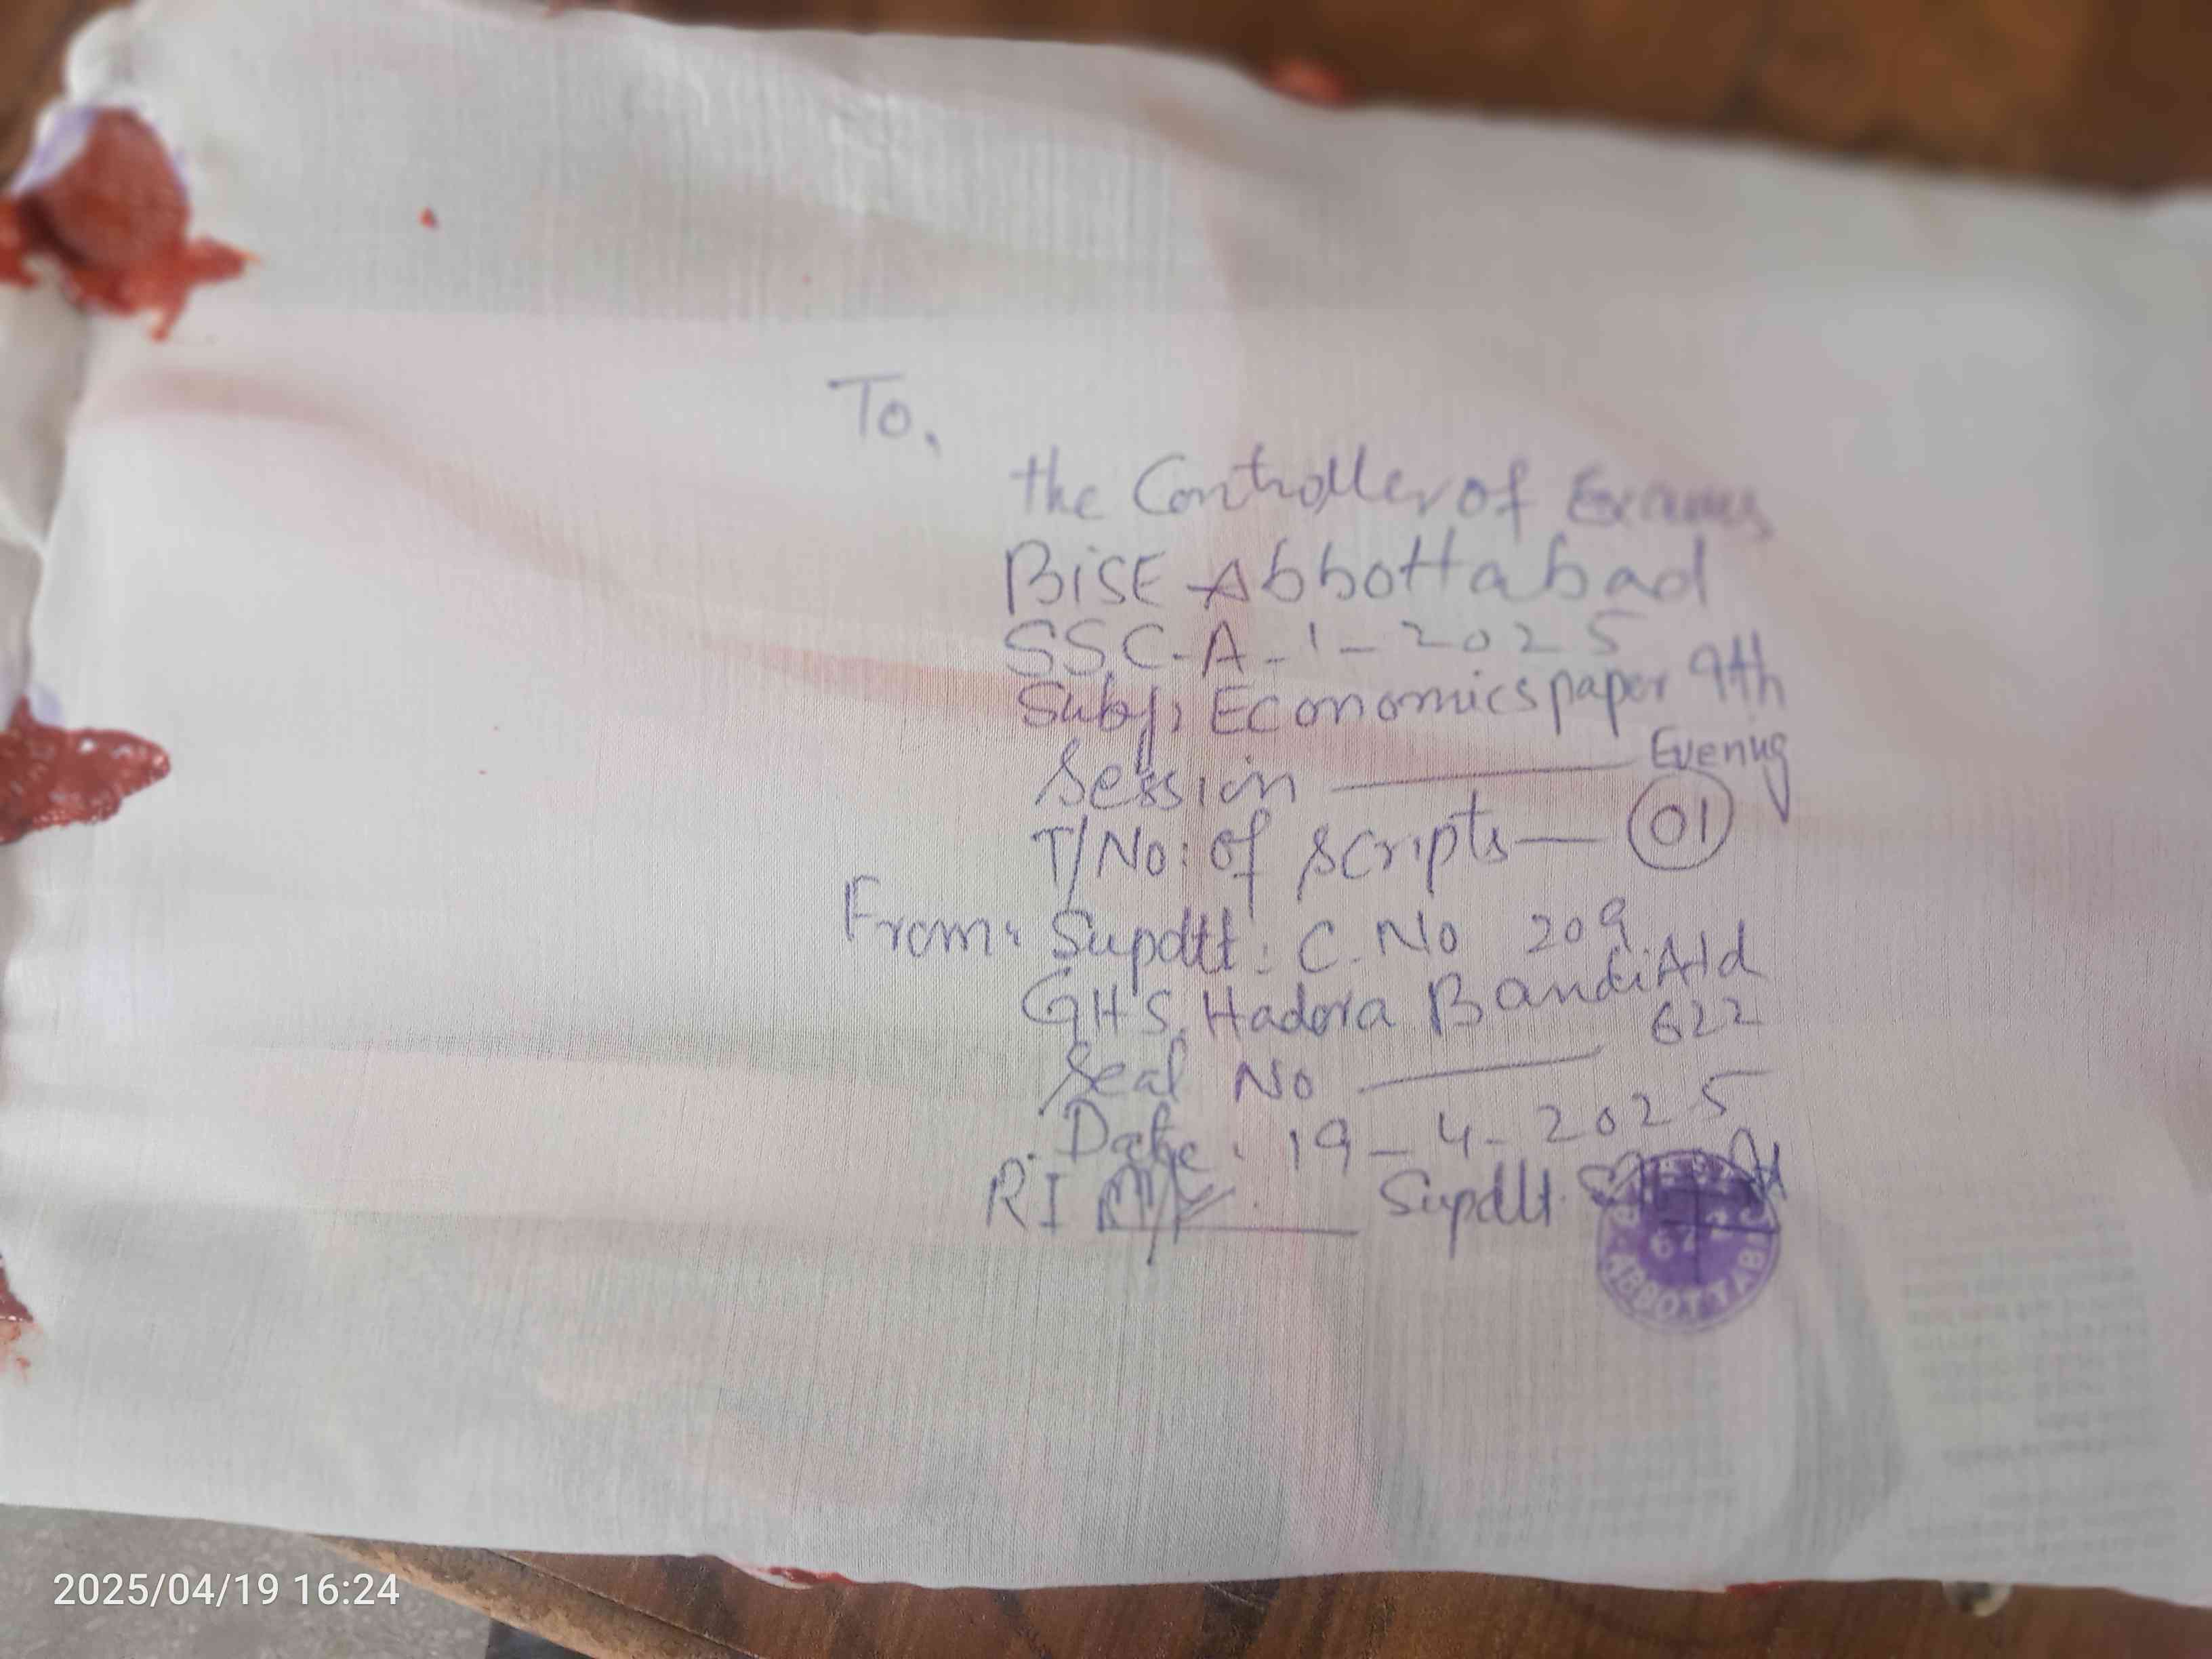 To,
the Controller of Exams
BISE Abbottabad
SSC-A-1-2025
Subj: Economics paper 9th
Session — Evening
T/No: of scripts — 01
From: Supdtt: C.No 209
GHS, Hadora Bandi Atd
Seal No — 622
Date: 19-4-2025
RI Supdtt.
622
ABBOTTABAD
2025/04/19 16:24